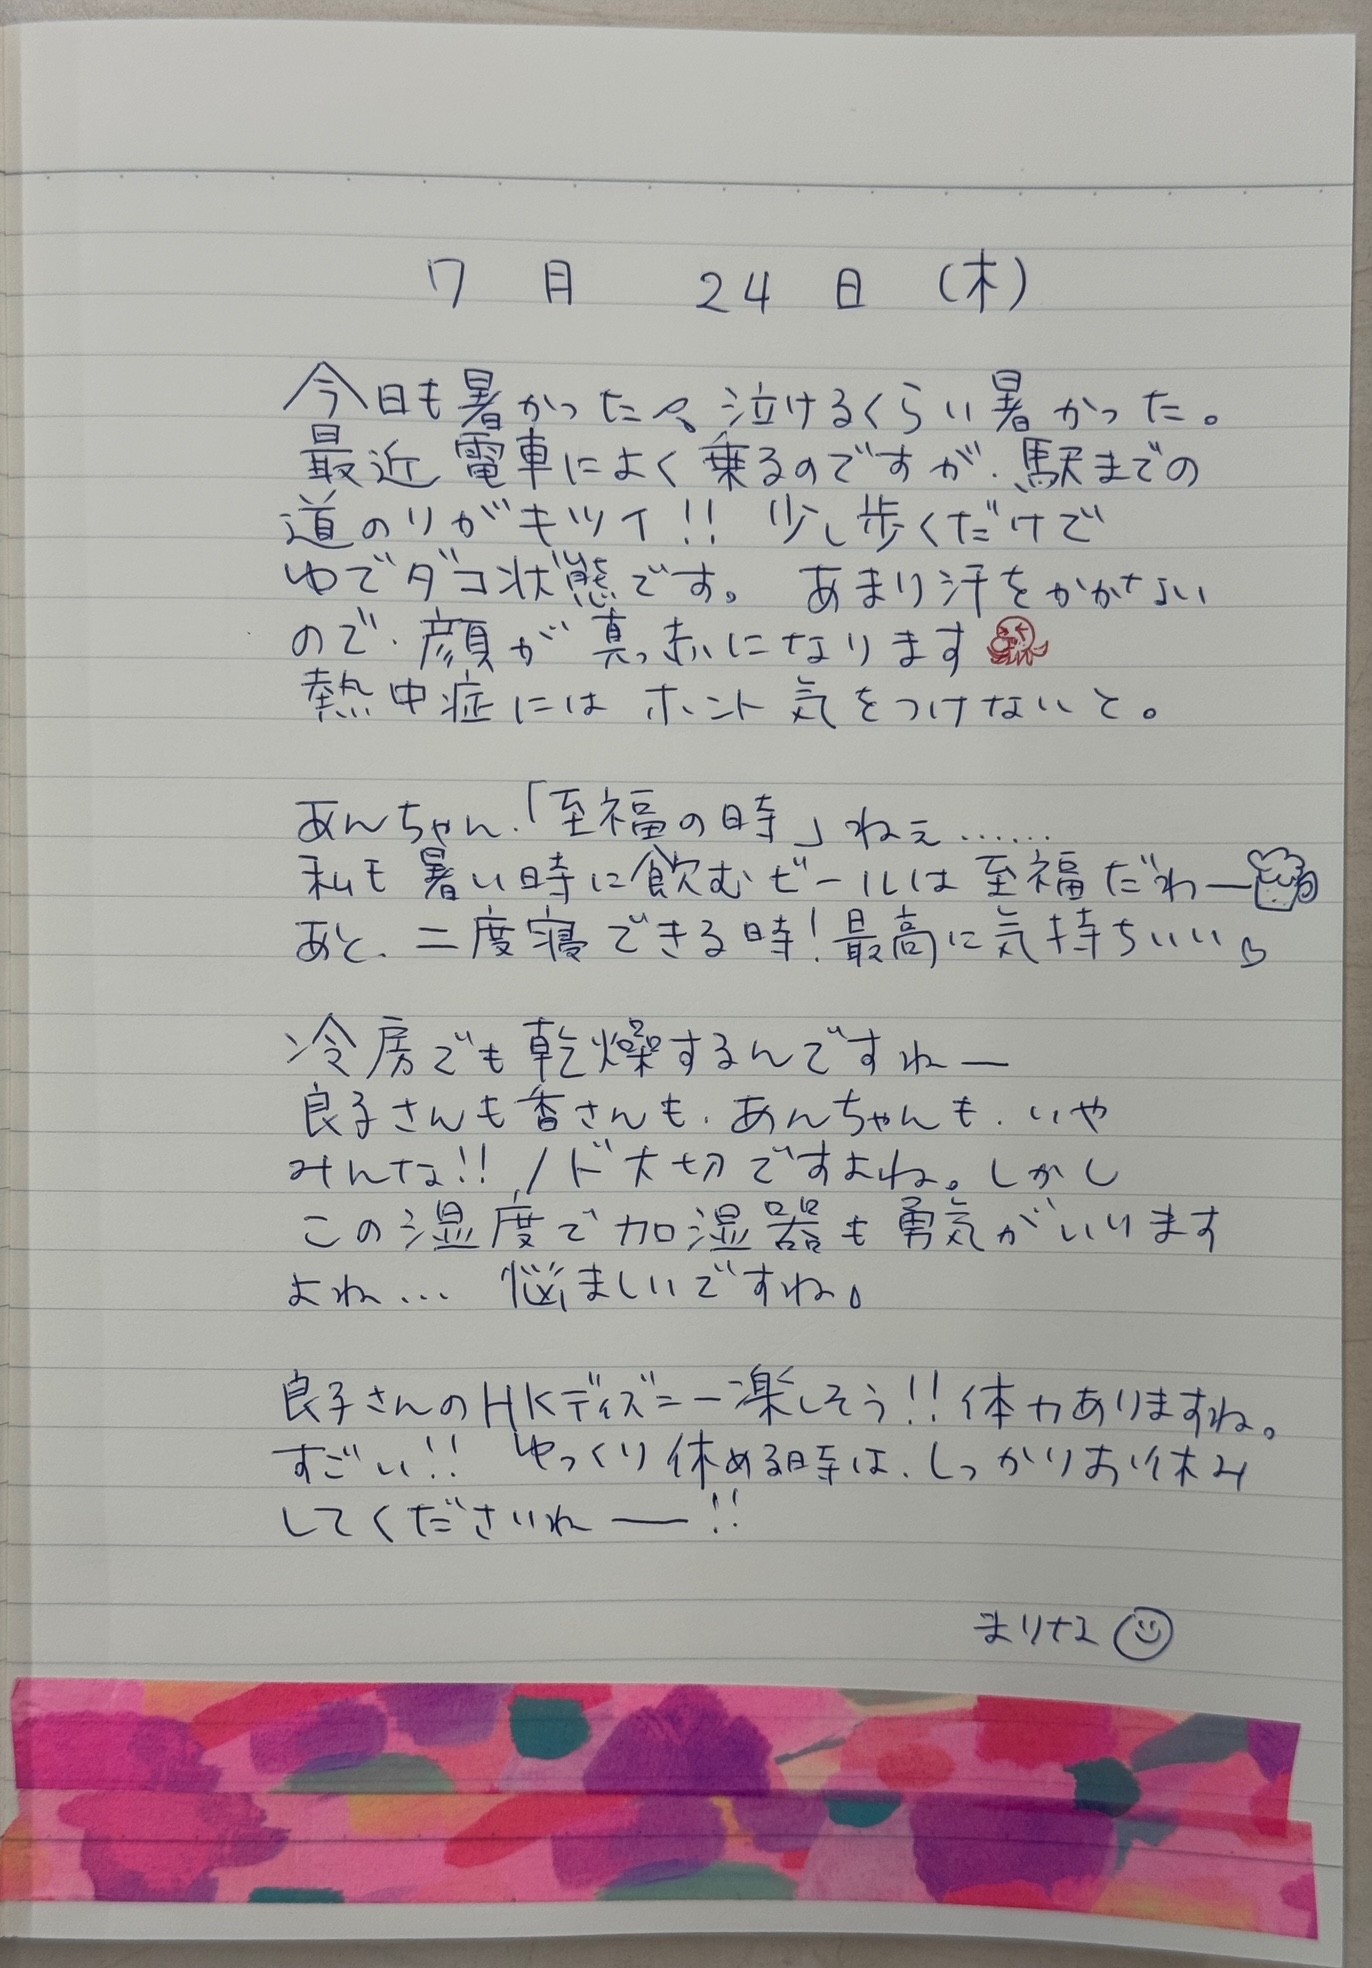 7月 24日 (木)
今日も暑かったぁ、泣けるくらい暑かった。
最近 電車によく乗るのですが、駅までの
道のりがキツイ!! 少し歩くだけで
ゆでダコ状態です。 あまり汗をかかない
ので、顔が真っ赤になります
熱中症にはホント気をつけないと。
あんちゃん、「至福の時」ねぇ……
私も暑い時に飲むビールは至福だわー
あと、二度寝できる時!最高に気持ちいい♡
冷房でも乾燥するんですねー
良子さんも香さんも、あんちゃんも、いや
みんな!! ノド大切ですよね。しかし
この湿度で加湿器も勇気がいります
よね… 悩ましいですね。
良子さんのHKディズニー楽しそう!!体力ありますね。
すごい!! ゆっくり休める時は、しっかりお休み
してくださいねー!!
まりなよ